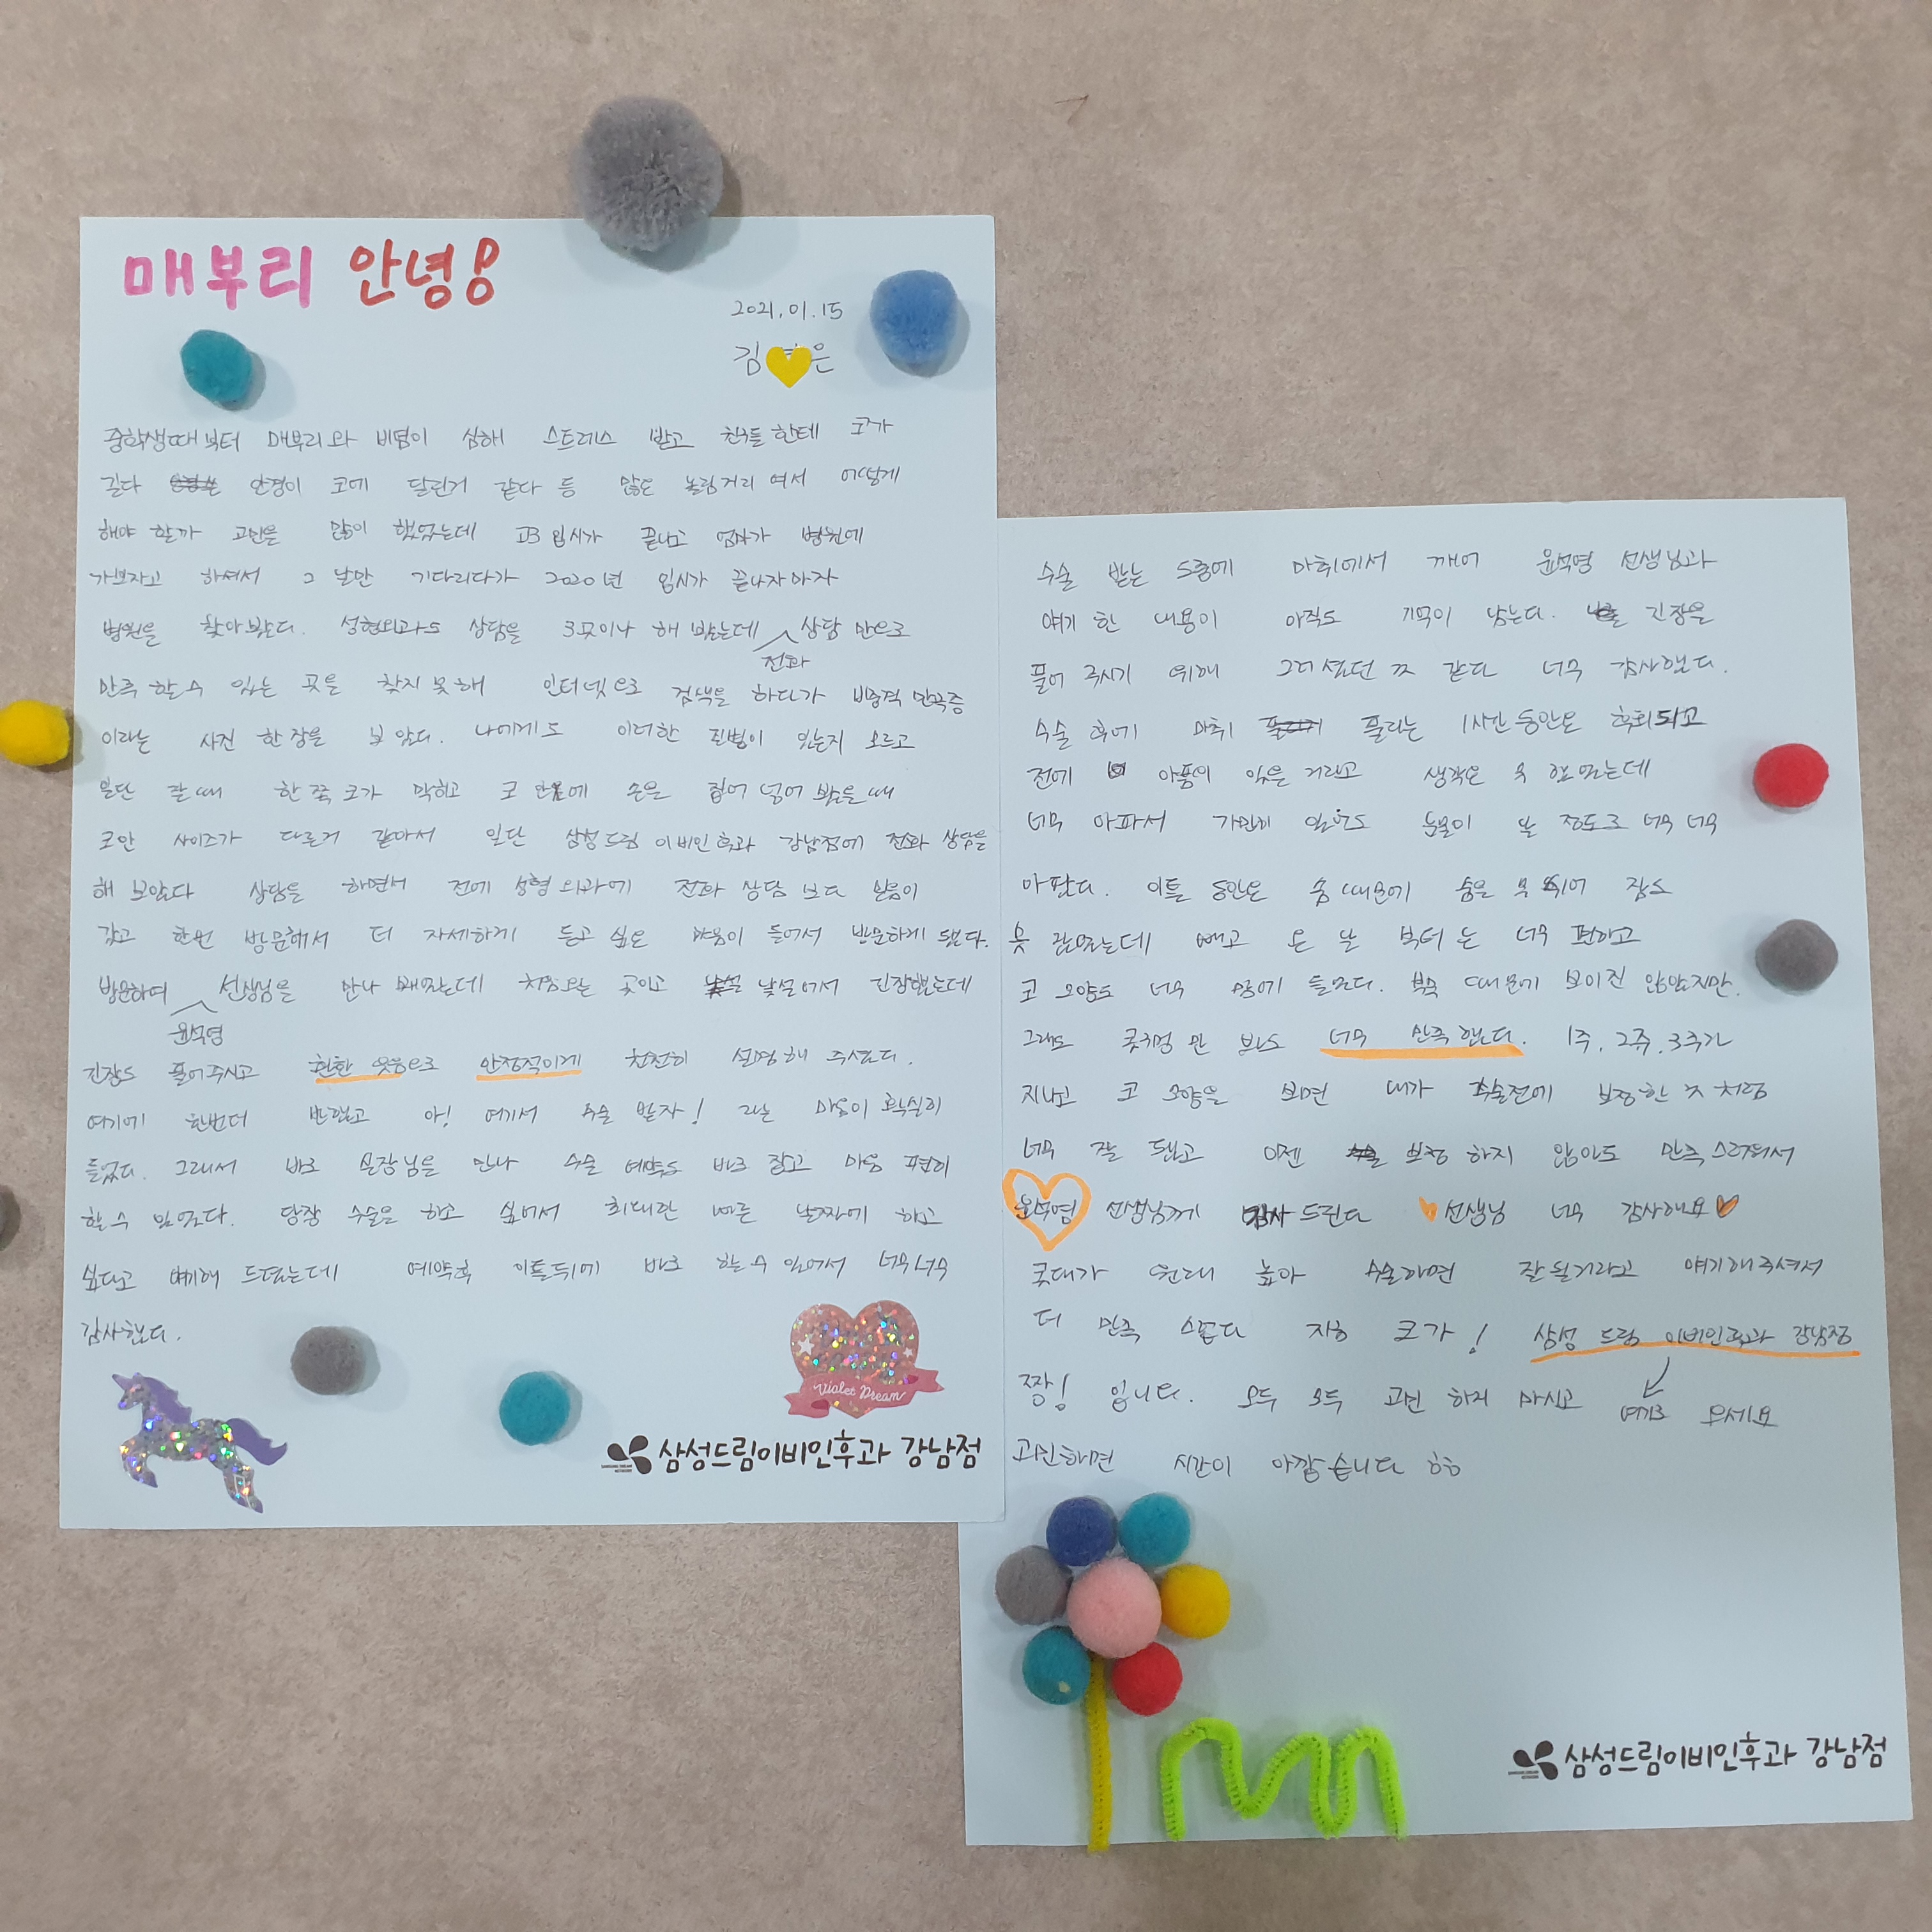 매부리 안녕!
2021.01.15
김 은
중학생때부터 매부리와 비염이 심해 스트레스 받고 친구들한테 코가
길다 안경이 코에 달린거 같다 등 많은 놀림거리 여서 어떻게
해야 할까 고민을 많이 했었는데 고3 입시가 끝나고 엄마가 병원에
가보자고 하셔서 그 날만 기다리다가 2020년 입시가 끝나자마자
병원을 찾아봤다. 성형외과도 상담을 3곳이나 해 봤는데 전화 상담 만으로
만족 할 수 있는 곳을 찾지 못해 인터넷으로 검색을 하다가 비중격 만곡증
이라는 사진 한 장을 보았다. 나에게도 이러한 질병이 있는지 모르고
일단 잘 때 한 쪽 코가 막히고 코 안에 손을 집어 넣어 봤을 때
코안 사이즈가 다른거 같아서 일단 삼성드림 이비인후과 강남점에 전화 상담을
해 보았다 상담을 하면서 전에 성형외과에 전화 상담 보다 믿음이
갔고 한번 방문해서 더 자세하게 듣고 싶은 마음이 들어서 방문하게 됐다.
방문하여 윤석영 선생님을 만나 뵀었는데 처음오는 곳이고 낯설어서 긴장했는데
긴장도 풀어주시고 환한 웃음으로 안정적이게 천천히 설명해 주셨다.
여기에 한번더 반했고 아! 여기서 수술 받자! 라는 마음이 확실히
들었다. 그래서 바로 실장님을 만나 수술 예약도 바로 잡고 마음 편히
할 수 있었다. 당장 수술을 하고 싶어서 최대한 빠른 날짜에 하고
싶다고 얘기해 드렸는데 예약후 이틀뒤에 바로 할 수 있어서 너무너무
감사했다.
Violet Dream
삼성드림이비인후과 강남점
수술 받는 도중에 마취에서 깨어 윤석영 선생님과
얘기 한 내용이 아직도 기억이 남는다. 긴장을
풀어 주시기 위해 그러셨던 것 같다 너무 감사했다.
수술 후에 마취 풀리는 1시간 동안은 후회되고
전에 아픔이 있을 거라고 생각은 못 했었는데
너무 아파서 가만히 있어도 눈물이 날 정도로 너무 너무
아팠다. 이틀 동안은 솜 때문에 숨을 못 쉬어 잠도
못 잤었는데 빼고 온 날 부터는 너무 편하고
코 모양도 너무 맘에 들었다. 붓기 때문에 보이진 않았지만.
그래도 콧구멍 만 봐도 너무 만족했다. 1주, 2주, 3주가
지나고 코 모양을 보면 내가 수술전에 보정한 것 처럼
너무 잘 됐고 이젠 보정 하지 않아도 만족스러워서
윤석영 선생님께 감사 드린다 선생님 너무 감사해요
콧대가 원래 높아 수술하면 잘 될거라고 얘기해주셔서
더 만족 스럽다 지능 코가! 삼성 드림 이비인후과 강남점
짱! 입니다. 모두 모두 고민 하지 마시고 여기로 오세요
고민하면 시간이 아깝습니다 ㅎㅎ
삼성드림이비인후과 강남점